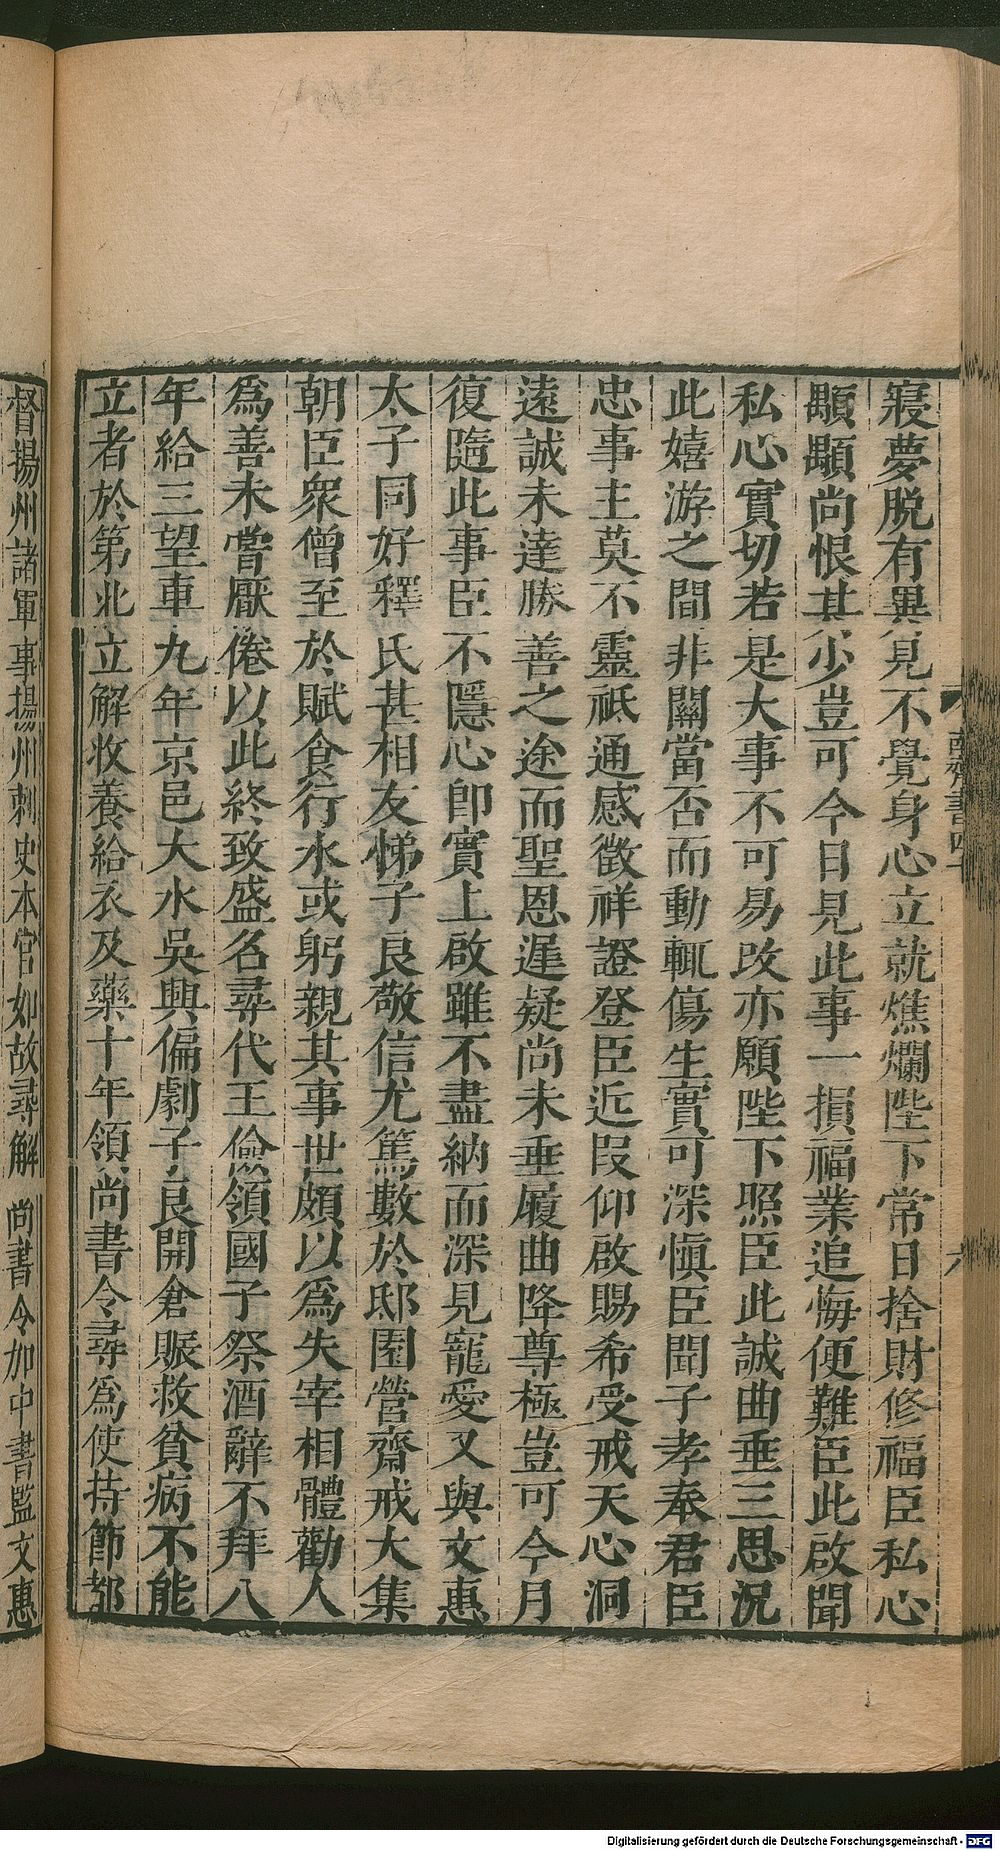 寢夢脱有異見不覺身心立就燋爛陛下常日捨財修福臣私心
顒顒尚恨其少豈可今日見此事一損福業追悔便難臣此啟聞
私心實切若是大事不可易改亦願陛下照臣此誠曲垂三思况
此嬉游之間非關當否而動輒傷生實可深愼臣聞子孝奉君臣
忠事主莫不靈祇通感徵祥證登臣近段仰啟賜希受戒天心洞
遠誠未達勝善之途而聖恩遲疑尚未垂履曲降尊極豈可今月
復隨此事臣不隱心卽實上啟雖不盡納而深見寵愛又與文惠
太子同好釋氏甚相友悌子良敬信尤篤數於邸園營齋戒大集
朝臣衆僧至於賦食行水或躬親其事世頗以爲失宰相體勸人
爲善未嘗厭倦以此終致盛名尋代王儉領國子祭酒辭不拜八
年給三望車九年京邑大水吳興偏劇子良開倉賑救貧病不能
立者於第北立解收養給衣及藥十年領尚書令尋爲使持節都
督揚州諸軍事揚州刺史本官如故尋解尚書令加中書監文惠
南齊書四十
六
Digitalisierung gefördert durch die Deutsche Forschungsgemeinschaft - DFG